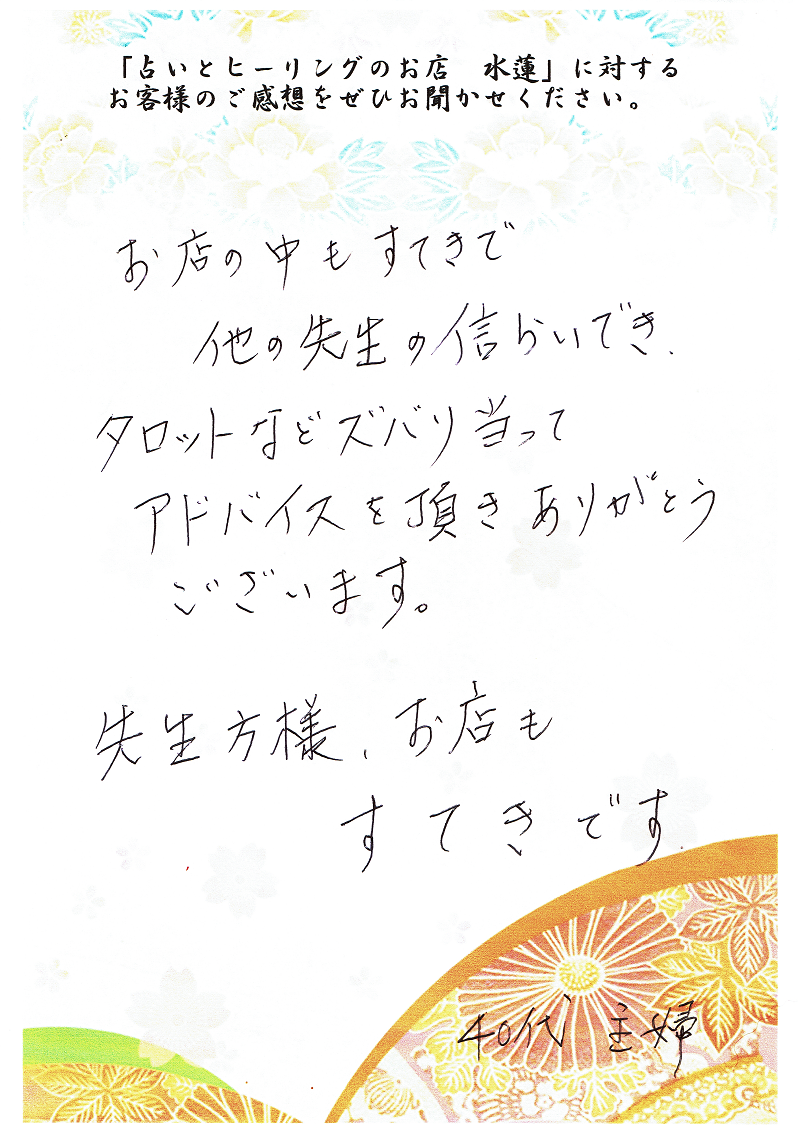 「占いとヒーリングのお店　水蓮」に対する
お客様のご感想をぜひお聞かせください。
お店の中もすてきで
他の先生の信らいでき、
タロットなどズバリ当って
アドバイスを頂きありがとう
ございます。
先生方様、お店も
すてきです.
40代 主婦